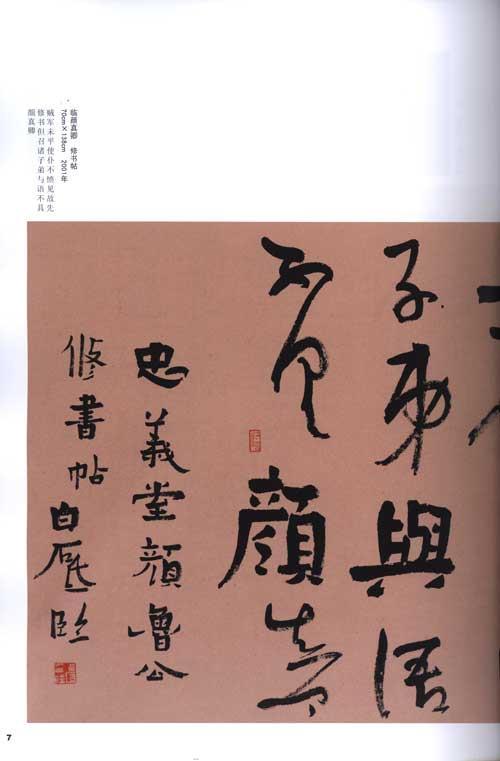 临颜真卿 修书帖
70cm×138cm 2001年
贼军未平使仆不见故先
修书但召诸子弟与语不具
颜真卿
子弟與語
不具顏真
忠義堂顏魯公
脩書帖
白臨
7